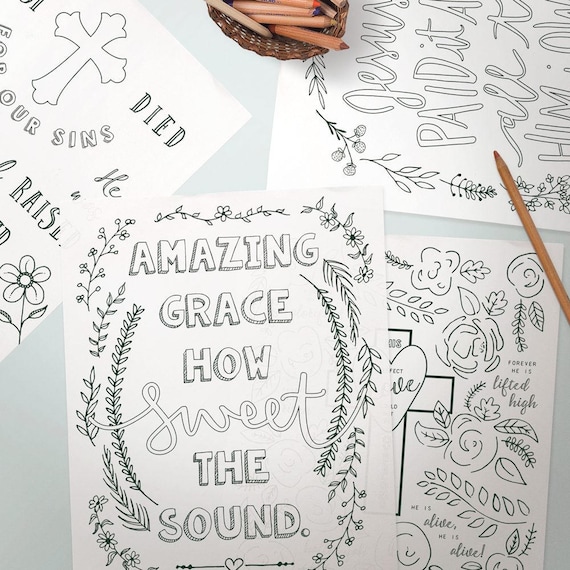 DIED
OUR SINS
He
RAISED
Jesus
PAID it A
all t
HIM I O
AMAZING
GRACE
HOW
sweet
THE
SOUND.
FOREVER
HE IS
lifted
high
HE IS
alive,
HE IS
alive!